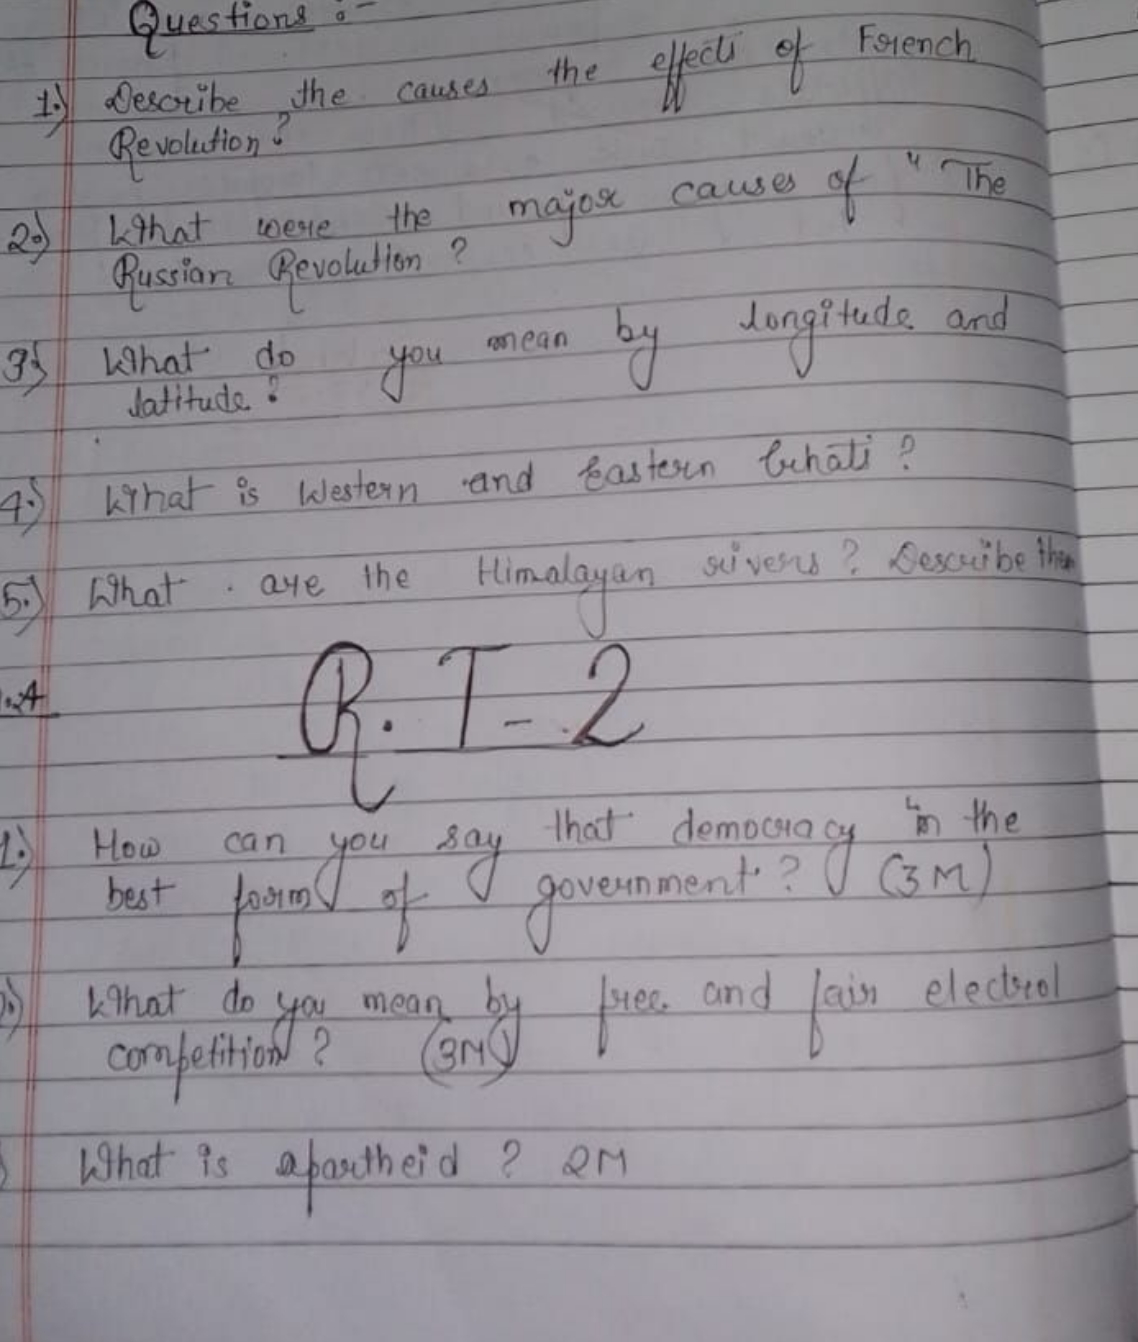 Questions :-
1.) Describe the causes the effects of French
Revolution?
2.) What were the major causes of "The
Russian Revolution?
3.) What do you mean by longitude and
latitude?
4.) What is Western and Eastern Ghats?
5.) What are the Himalayan rivers? Describe them
R.T-2
1.) How can you say that democracy in the
best form of government? (3M)
What do you mean by free and fair electrol
competition? (3M)
What is apartheid? 2M